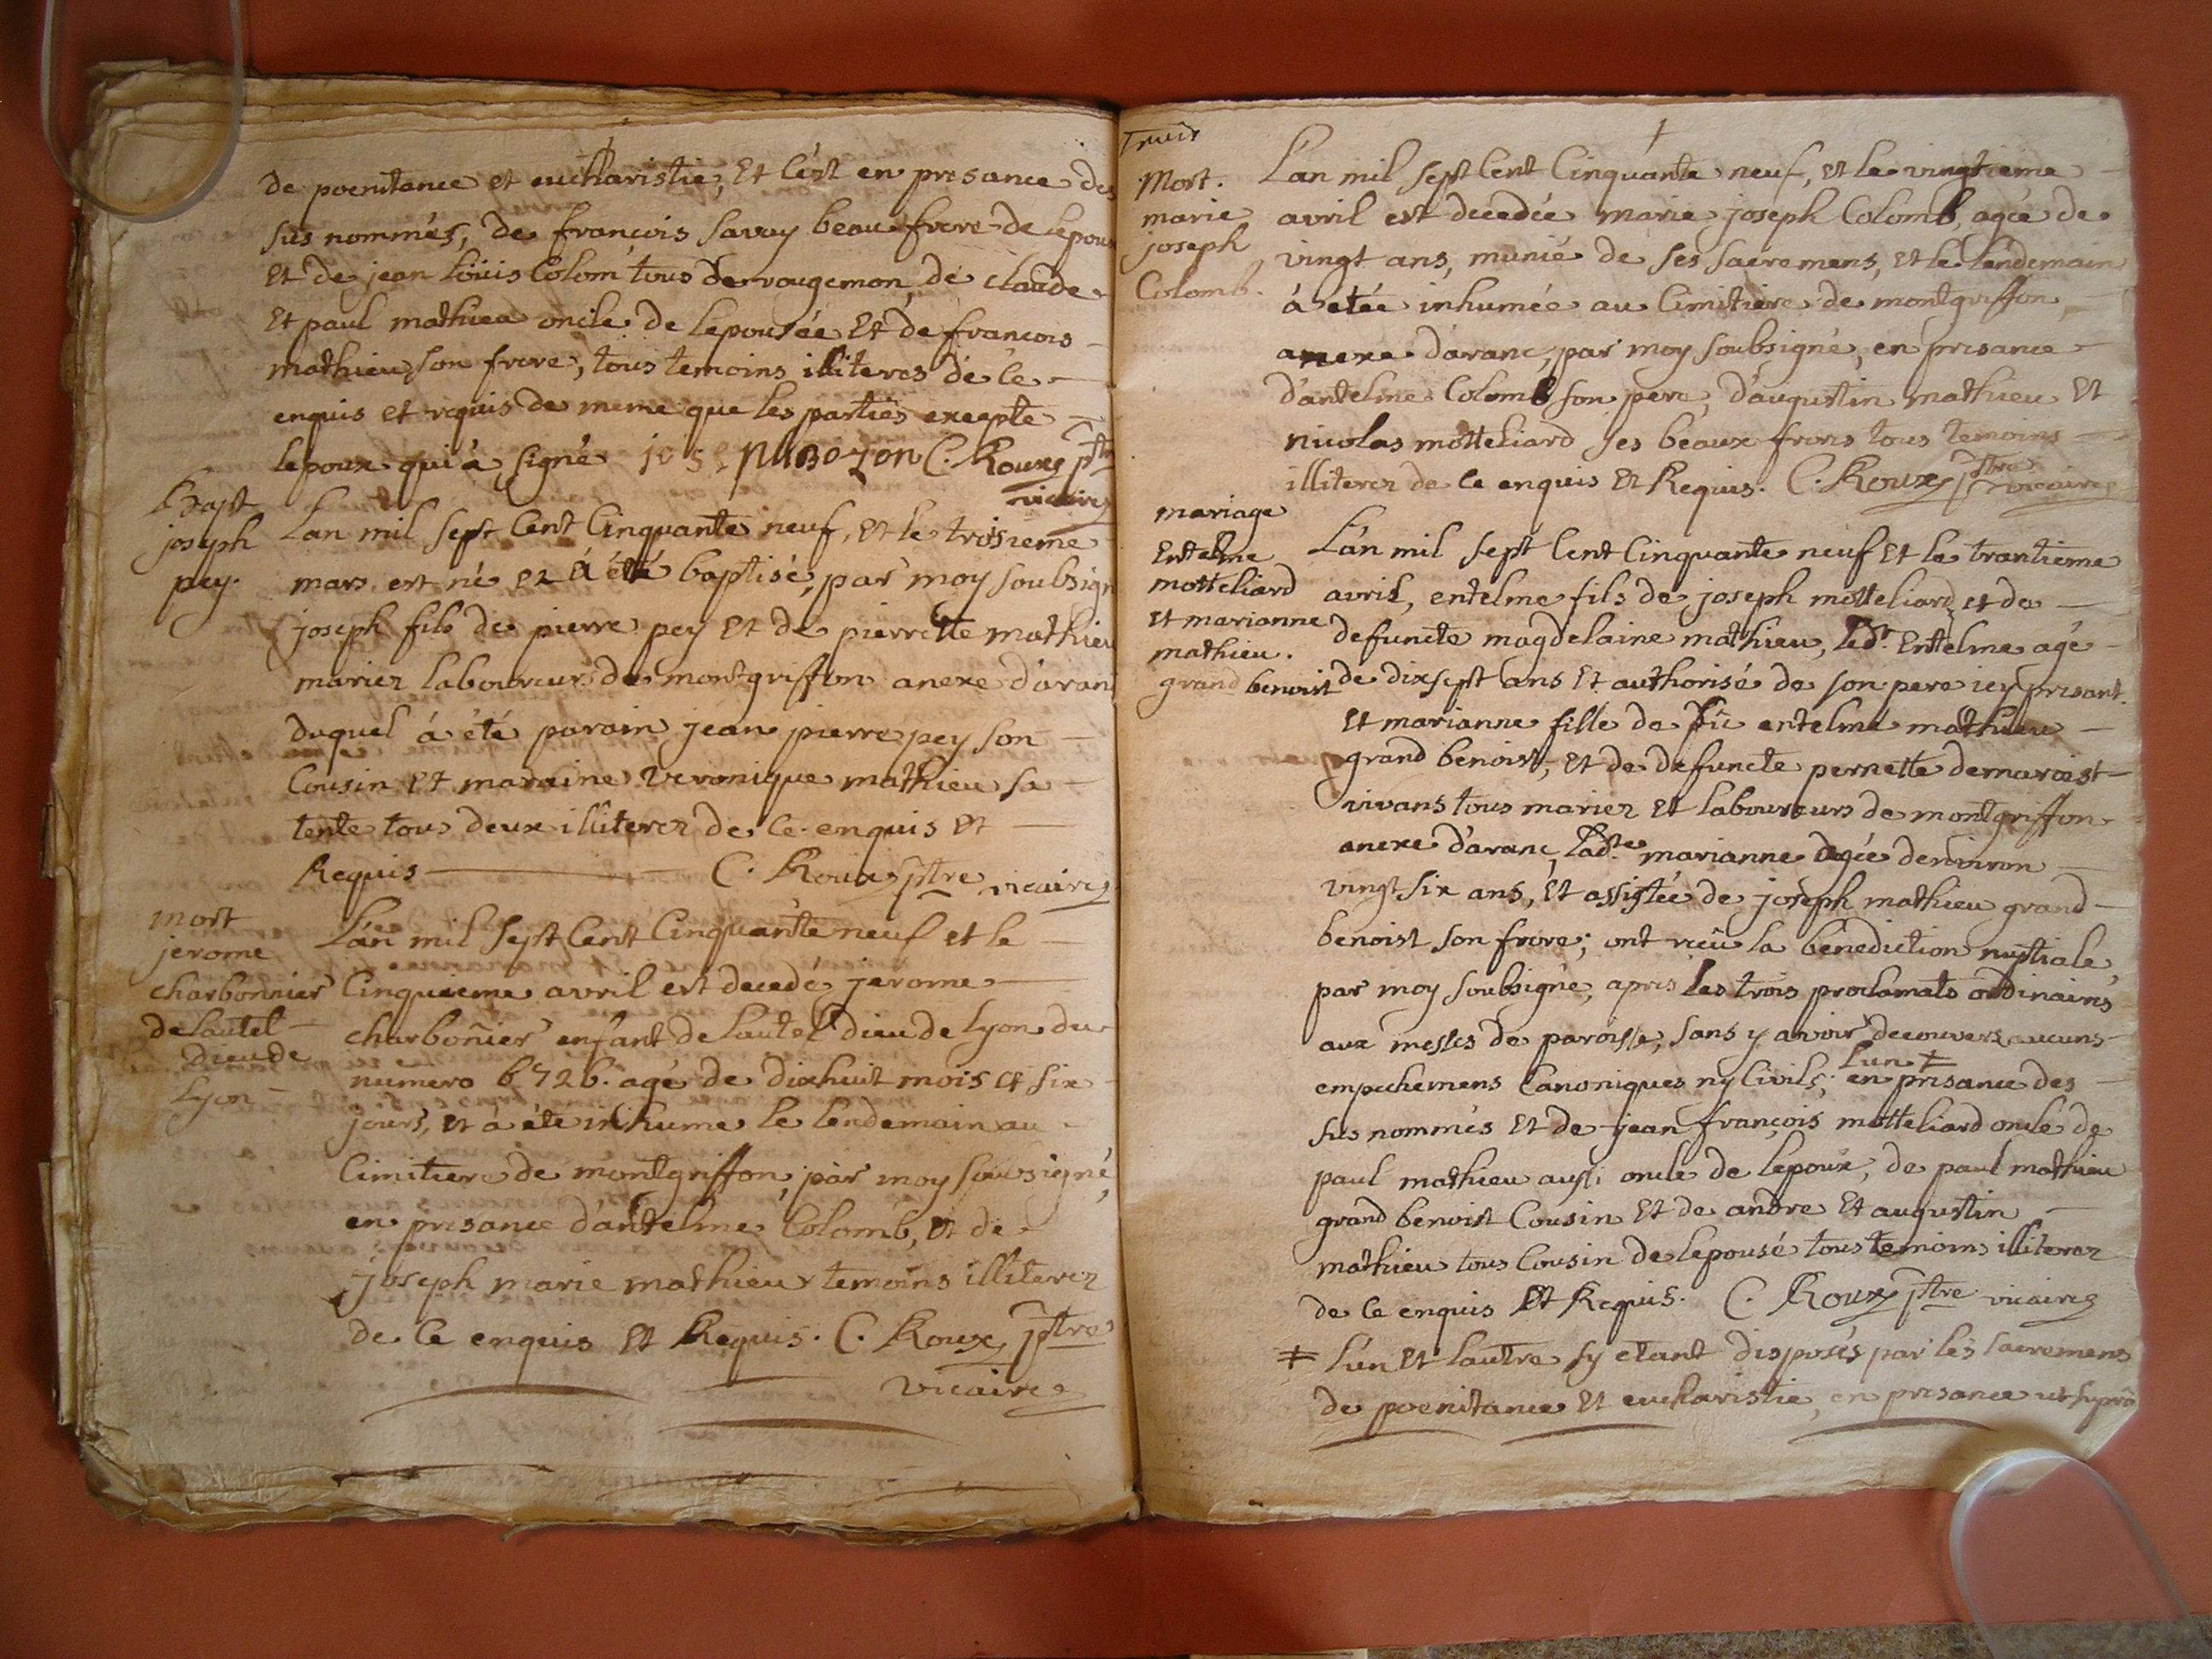 de poenitance et eucharistie, Et Cest en presance des
sus nommés, de francois savuy beau frere de lepoux
Et de jean loüis Colom tous de rougemon, de claude
Et paul mathieu oncle de lepousée Et de francois
mathieu son frere, tous temoins illiteres de ce
enquis et requis de meme que les parties excepte
lepoux qui à signé C. Roux ptre
vicaire
Bapt
joseph
pey.
Lan mil sept Cent Cinquante neuf, et le troisieme
mars est né et à été baptisé, par moy soubsigné
joseph fils de pierre pey Et de pierrette mathieu
mariez laboureurs de montgriffon anexe d'aranc
duquel á été parain jean pierre pey son
Cousin Et maraine veronique mathieu sa
tente tous deux illiterez de Ce enquis et
Requis C. Roux ptre vicaire
mort
jerome
charbonnier
de lautel
Dieu de
Lyon
L'an mil sept Cent Cinquante neuf et le
Cinquieme avril est decedé jerome
charboñier enfant de lautel dieu de Lyon du
numero 6726. agé de dixhuit mois et six
jours, et à éte inhume le lendemain au
Cimitiere de montgriffon, par moy sousigné,
en presance d'antelme Colomb, et de
joseph marie mathieu temoins illiterez
de Ce enquis et Requis. C. Roux ptre
vicaire
Mort.
marie
joseph
Colomb.
L'an mil sept Cent Cinquante neuf, et le vingtieme
avril est decedée marie joseph Colomb, agée de
vingt ans, munie de ses sacremens, et le lendemain
à etée inhumée au Cimitiere de montgriffon
anexe d'aranc, par moy soubsigné, en presance
d'antelme Colomb son pere, d'augustin mathieu Et
nicolas motteliard ses beaux freres tous temoins
illiterez de Ce enquis Et Requis. C. Roux ptre vicaire
mariage
Entelme
motteliard
et marianne
mathieu.
grand benoist
L'an mil sept Cent Cinquante neuf Et le trantieme
avril, entelme fils de joseph motteliard et de
defuncte magdelaine mathieu, ledt. Entelme agé
de dixsept ans Et authorisé de son pere icy presant.
Et marianne fille de fû entelme mathieu
grand benoist, Et de defuncte pernette demarcest
vivans tous mariez et laboureurs de montgriffon
anexe d'aranc, ladte marianne agée denviron
vingt six ans, Et assistée de joseph mathieu grand
benoist son frere; ont reçû la bénediction nuptiale,
par moy soubsigné, apres les trois proclamats ordinaires
aux messes de paroisse, sans y avoir decouvers aucuns
empechemens Canoniques ny Civils; lun ‡ en presance des
sus nommés Et de jean françois motteliard oncle de
paul mathieu aussi oncle de lepoux, de paul mathieu
grand benoist Cousin Et de andre Et augustin
mathieu tous Cousin de lepousé tous temoins illiterez
de Ce enquis Et Requis. C. Roux ptre vicaire
‡ l'un Et lautre sy etant disposés par les sacremens
de poenitance Et eucharistie, en presance ut suprà